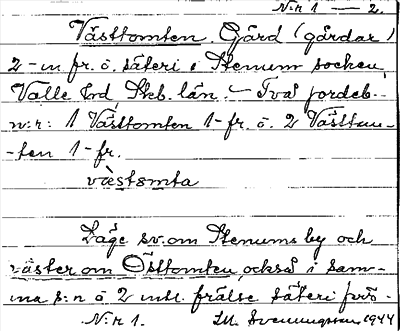 N:r 1 — 2.
Västtomten Gård (gårdar)
2-m. fr. o. säteri i Stenum socken,
Valle hd, Skb. län. – Två jordeb.
n:r: 1 Västtomten 1-fr. o. 2 Västtom-
-ten 1-fr.
væstomta
Läge sv. om Stenums by och
väster om Östtomten, också i sam-
ma s:n o. 2 mtl. frälse säteri
N:r 1. 1944